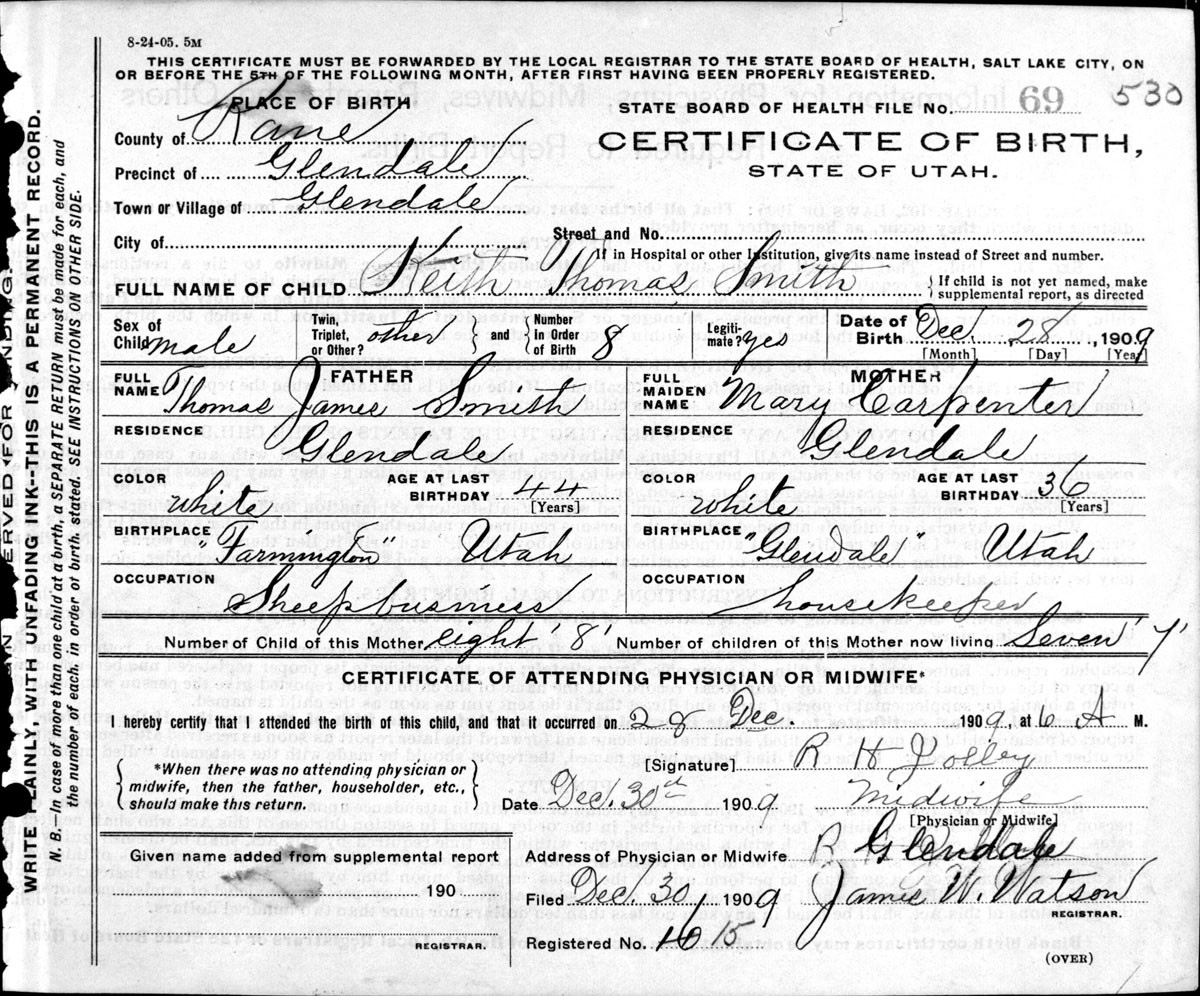 8-24-05. 5M
THIS CERTIFICATE MUST BE FORWARDED BY THE LOCAL REGISTRAR TO THE STATE BOARD OF HEALTH, SALT LAKE CITY, ON
OR BEFORE THE 5TH OF THE FOLLOWING MONTH, AFTER FIRST HAVING BEEN PROPERLY REGISTERED.
PLACE OF BIRTH
STATE BOARD OF HEALTH FILE NO. 69 530
County of Kane
CERTIFICATE OF BIRTH,
Precinct of Glendale
STATE OF UTAH.
Town or Village of Glendale
City of Street and No.
If in Hospital or other Institution, give its name instead of Street and number.
FULL NAME OF CHILD Keith Thomas Smith { If child is not yet named, make supplemental report, as directed
Sex of Child male Twin, Triplet, or Other? other } and { Number In Order of Birth 8 Legitimate? yes Date of Birth Dec. 28, 1909
[Month] [Day] [Year]
FATHER MOTHER
FULL NAME Thomas James Smith FULL MAIDEN NAME Mary Carpenter
RESIDENCE Glendale RESIDENCE Glendale
COLOR white AGE AT LAST BIRTHDAY 44 [Years] COLOR white AGE AT LAST BIRTHDAY 36 [Years]
BIRTHPLACE "Farmington" Utah BIRTHPLACE "Glendale" Utah
OCCUPATION Sheep business OCCUPATION housekeeper
Number of Child of this Mother eight '8' Number of children of this Mother now living Seven '7'
CERTIFICATE OF ATTENDING PHYSICIAN OR MIDWIFE*
I hereby certify that I attended the birth of this child, and that it occurred on 28 Dec. 1909, at 6 A M.
{ *When there was no attending physician or midwife, then the father, householder, etc., should make this return. }
[Signature] R H Jolley
Date Dec. 30th 1909 Midwife
[Physician or Midwife]
Given name added from supplemental report
Address of Physician or Midwife Glendale
190
Filed Dec. 30, 1909 James W. Watson
REGISTRAR.
REGISTRAR.
Registered No. 16 15
(OVER)
WRITE PLAINLY WITH UNFADING INK--THIS IS A PERMANENT RECORD.
N. B.—In case of more than one child at a birth, a SEPARATE RETURN must be made for each, and
the number of each, in order of birth, stated. SEE INSTRUCTIONS ON OTHER SIDE.